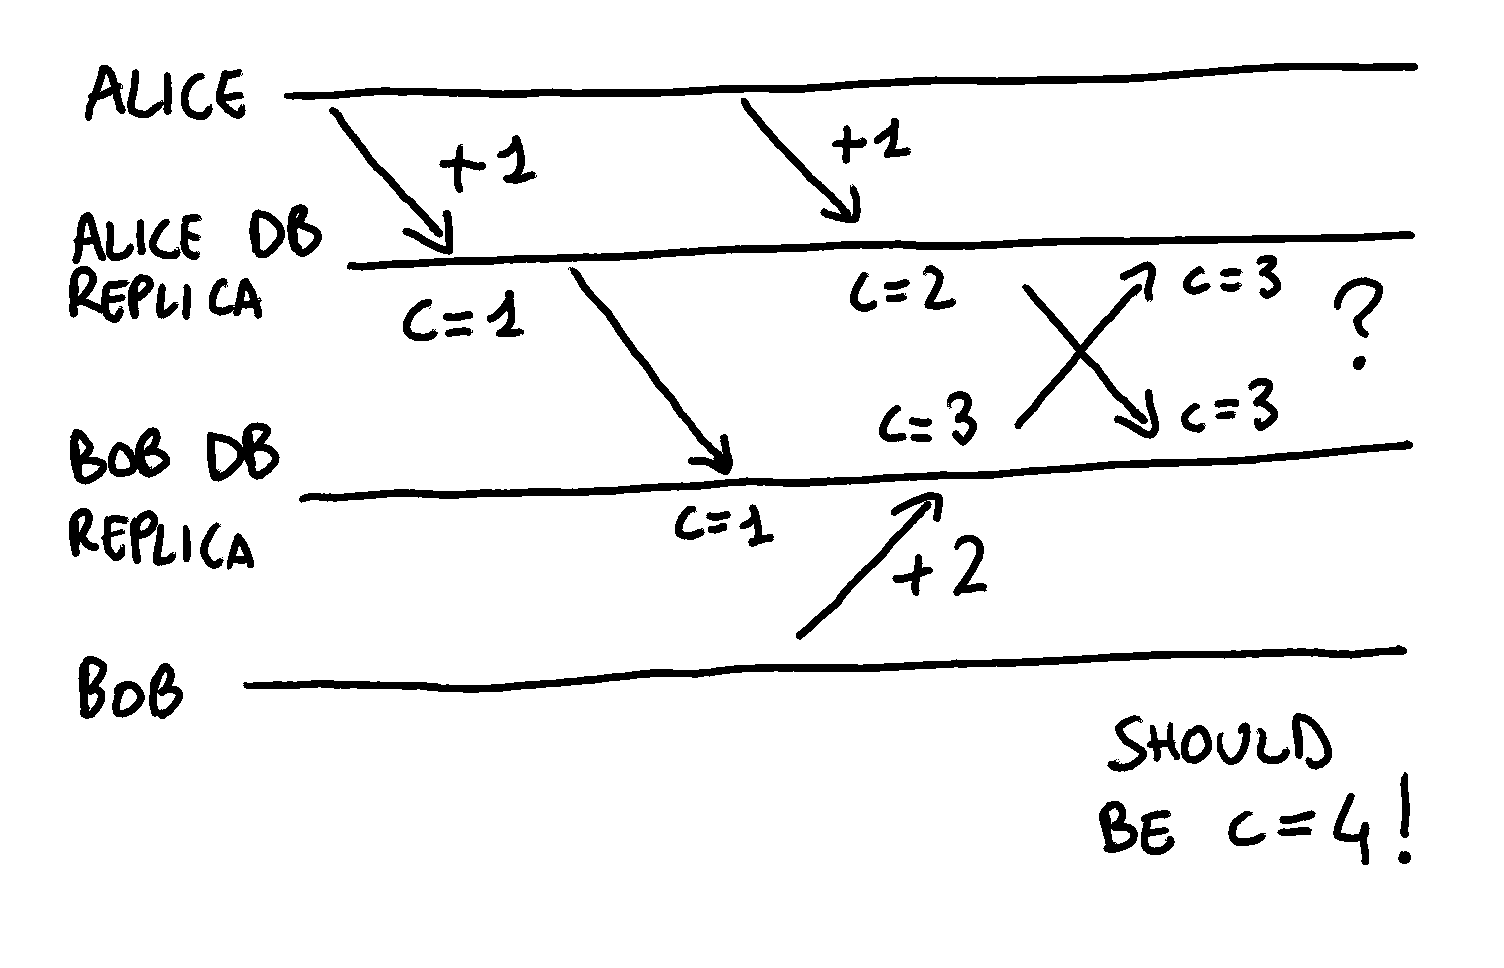 ALICE
+1
+1
ALICE DB
REPLICA
C=1
C=2
C=3
?
C=3
C=3
BOB DB
REPLICA
C=1
+2
BOB
SHOULD
BE C=4!